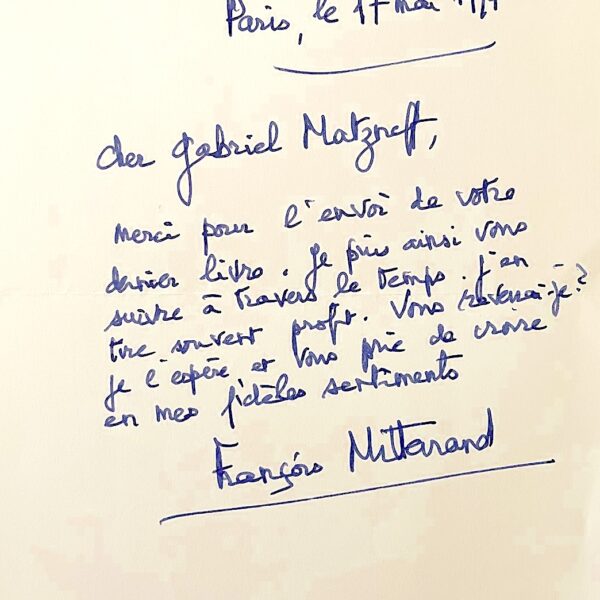 Paris, le 17 mai
Cher Gabriel Matzneff,
Merci pour l'envoi de votre
dernier livre. Je puis ainsi vous
suivre à travers le temps. J'en
tire souvent profit. Vous reverrai-je?
Je l'espère et vous prie de croire
en mes fidèles sentiments
François Mitterrand